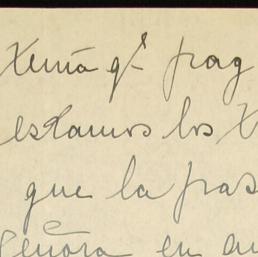 Xema qᵉ prag
estamos los X
que la pas
Señora en au